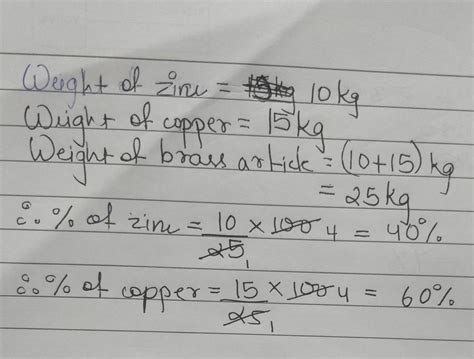 Weight of zinc = 10 kg
Weight of copper = 15 kg
Weight of brass article = (10+15) kg
= 25 kg
∴ % of zinc = 10/25 × 100 4 = 40%
1
∴ % of copper = 15/25 × 100 4 = 60%
1